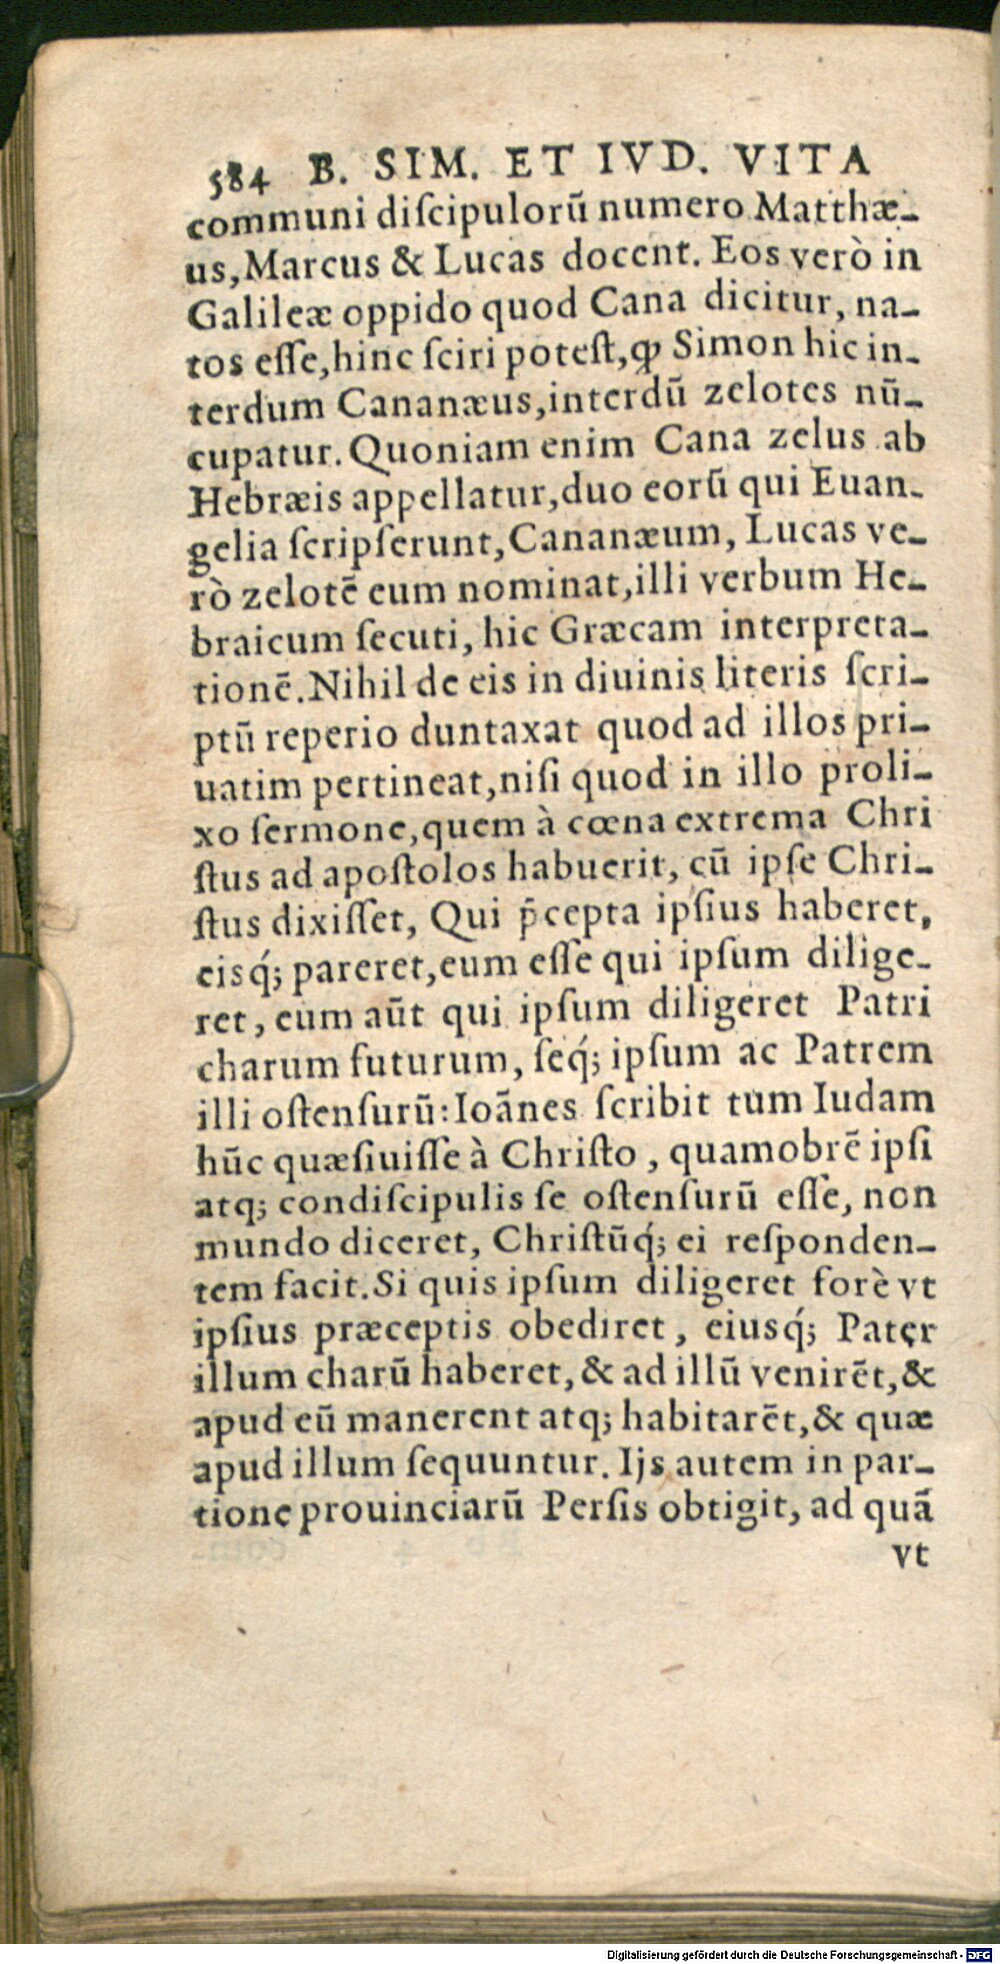 584 B. SIM. ET IVD. VITA
communi diſcipulorũ numero Matthæ-
us, Marcus & Lucas docent. Eos verò in
Galileæ oppido quod Cana dicitur, na-
tos eſſe, hinc ſciri poteſt, ꝙ Simon hic in-
terdum Cananæus, interdũ zelotes nũ-
cupatur. Quoniam enim Cana zelus ab
Hebræis appellatur, duo eorũ qui Euan-
gelia ſcripſerunt, Cananæum, Lucas ve-
rò zelotẽ eum nominat, illi verbum He-
braicum ſecuti, hic Græcam interpreta-
tionẽ. Nihil de eis in diuinis literis ſcri-
ptũ reperio duntaxat quod ad illos pri-
uatim pertineat, niſi quod in illo proli-
xo ſermone, quem à cœna extrema Chri
ſtus ad apoſtolos habuerit, cũ ipſe Chri-
ſtus dixiſſet, Qui p̃cepta ipſius haberet,
eisq́; pareret, eum eſſe qui ipſum dilige-
ret, eum aũt qui ipſum diligeret Patri
charum futurum, ſeq́; ipſum ac Patrem
illi oſtenſurũ: Ioãnes ſcribit tum Iudam
hũc quæſiuiſſe à Chriſto, quamobrẽ ipſi
atq; condiſcipulis ſe oſtenſurũ eſſe, non
mundo diceret, Chriſtũq́; ei reſponden-
tem facit. Si quis ipſum diligeret forè vt
ipſius præceptis obediret, eiusq́; Pater
illum charũ haberet, & ad illũ venirẽt, &
apud eũ manerent atq; habitarẽt, & quæ
apud illum ſequuntur. Ijs autem in par-
tione prouinciarũ Perſis obtigit, ad quã
vt
Digitalisierung gefördert durch die Deutsche Forschungsgemeinschaft - DFG